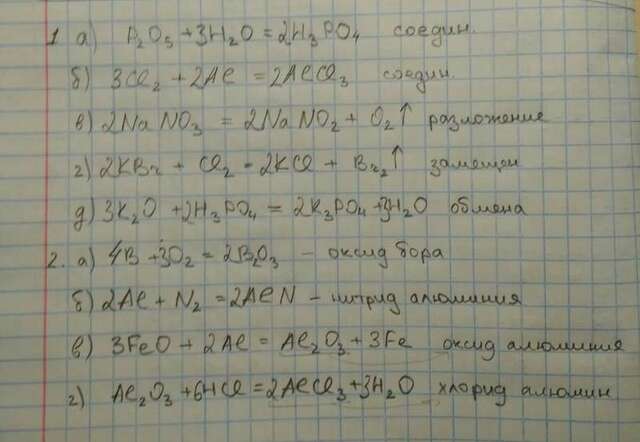 1. а) P₂O₅ + 3H₂O = 2H₃PO₄ соедин.
б) 3Cl₂ + 2Al = 2AlCl₃ соедин.
в) 2NaNO₃ = 2NaNO₂ + O₂↑ разложение
г) 2KBr + Cl₂ = 2KCl + Br₂↑ замещен
д) 3K₂O + 2H₃PO₄ = 2K₃PO₄ + 3H₂O обмена
2. а) 4B + 3O₂ = 2B₂O₃ – оксид бора
б) 2Al + N₂ = 2AlN – нитрид алюминия
в) 3FeO + 2Al = Al₂O₃ + 3Fe оксид алюминия
г) Al₂O₃ + 6HCl = 2AlCl₃ + 3H₂O хлорид алюмин